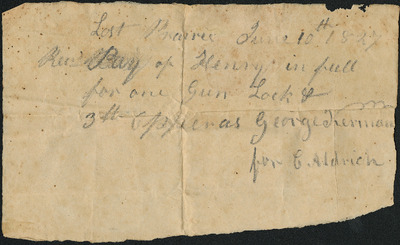 Lost Prairie June 10th 1827
Rec Pay of Henry in full
for one Gun Lock &
3 lb Copperas George Herman
for E. Aldrich